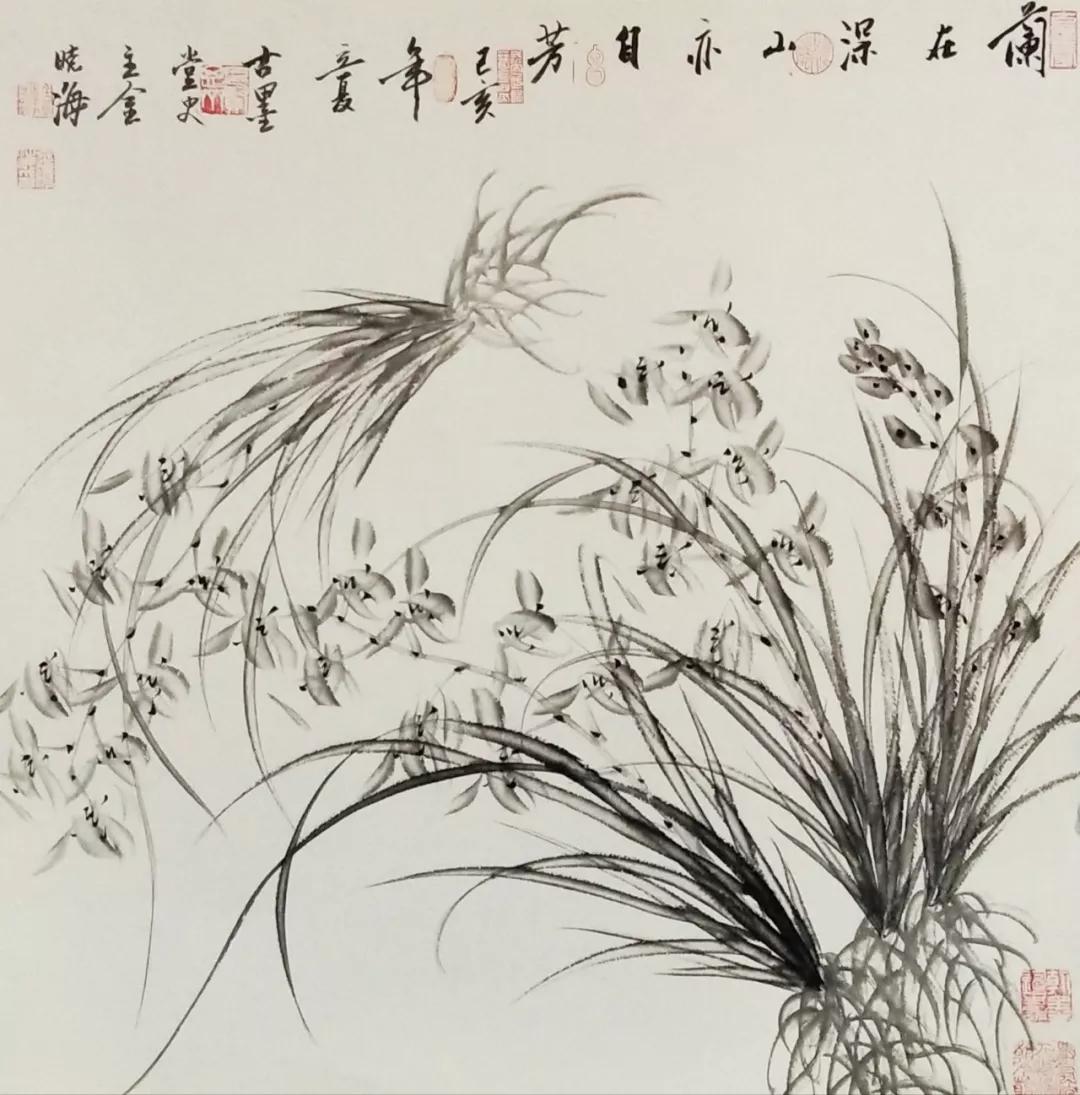 蘭在深山亦自芳
己亥年立夏古墨堂史主金曉海